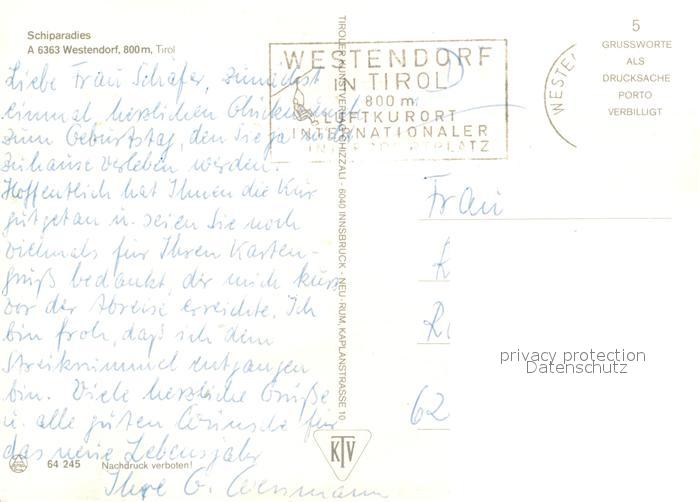 Schiparadies
A 6363 Westendorf, 800 m, Tirol
Liebe Frau Schäfer, zunächst
einmal herzlichen Glückwunsch
zum Geburtstag, den Sie ja
zuhause verleben werden.
Hoffentlich hat Ihnen die Kur
gutgetan u. seien Sie noch
vielmals für Ihren Karten-
gruß bedankt, der mich kurz
vor der Abreise erreichte. Ich
bin froh, daß ich dem
Streikrummel entgangen
bin. Viele herzliche Grüße
u. alle guten Wünsche für
das neue Lebensjahr
Ihre G.
64 245 Nachdruck verboten!
TIROLER KUNSTVERLAG CHIZZALI - 6040 INNSBRUCK - NEU-RUM, KAPLANSTRASSE 10
KTV
WESTENDORF
IN TIROL
800 m
LUFTKURORT
INTERNATIONALER
WESTE
5
GRUSSWORTE
ALS
DRUCKSACHE
PORTO
VERBILLIGT
Frau
62
privacy protection
Datenschutz